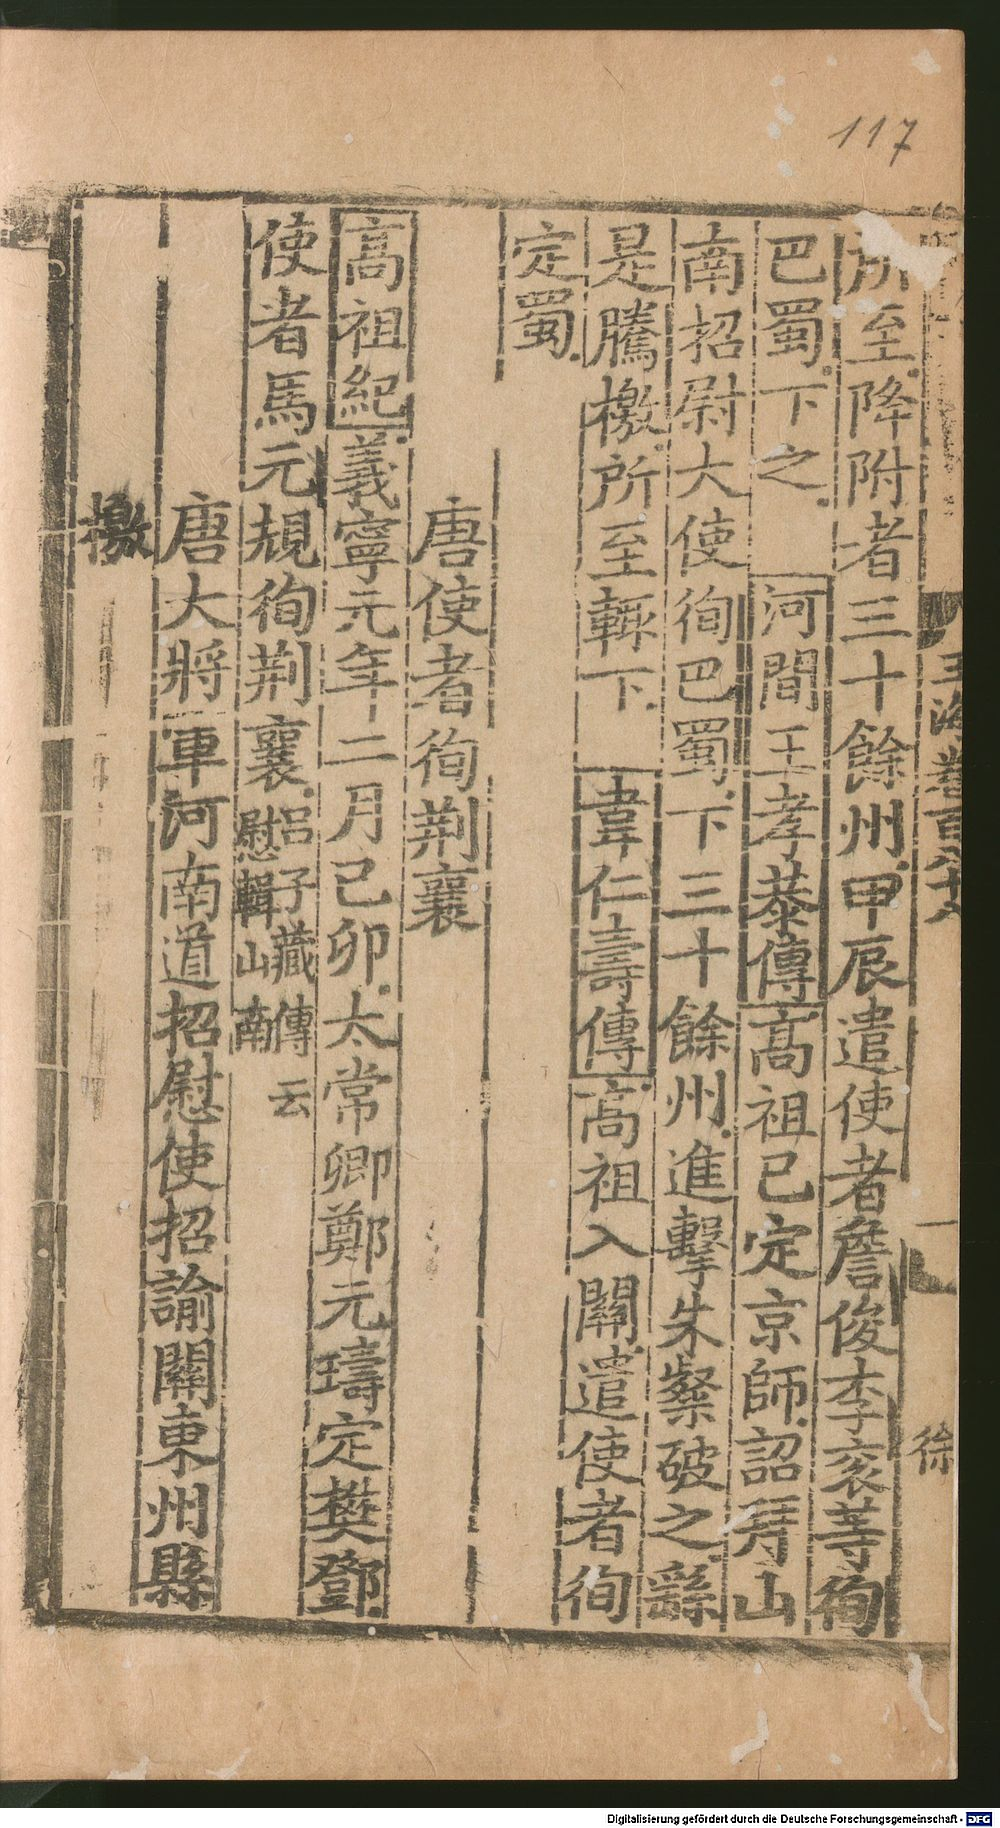 117
玉海卷百八十八
徐
所至降附者三十餘州甲辰遣使者詹俊李袞等徇
巴蜀下之 河間王孝恭傳高祖已定京師詔拜山
南招尉大使徇巴蜀下三十餘州進擊朱粲破之繇
是騰檄所至輒下 韋仁壽傳高祖入關遣使者徇
定蜀
唐使者徇荆襄
高祖紀義寧元年二月己卯太常卿鄭元璹定樊鄧
使者馬元規徇荆襄 呂子臧傳云慰輯山南
唐大將軍河南道招慰使招諭關東州縣
檄
Digitalisierung gefördert durch die Deutsche Forschungsgemeinschaft - DFG